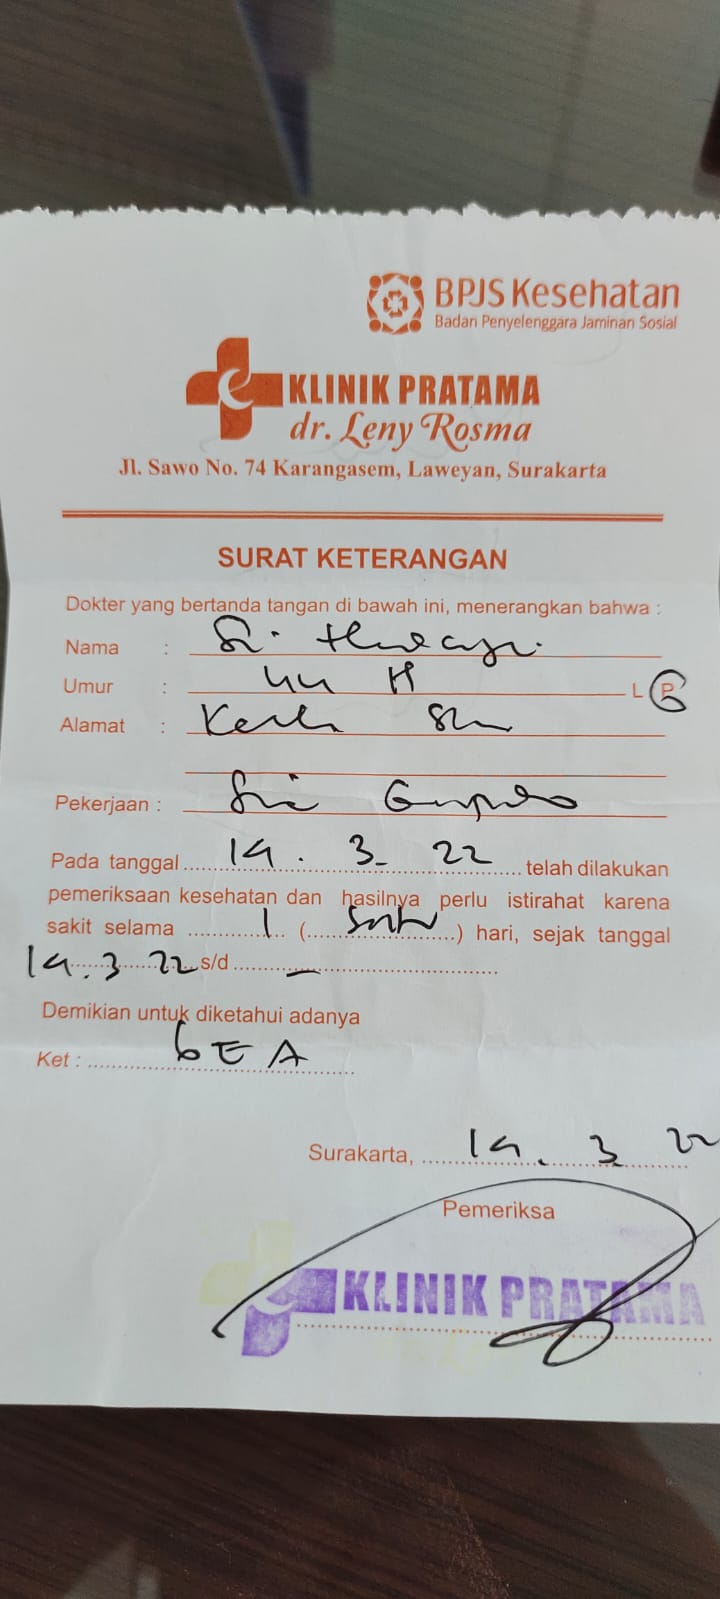 BPJS Kesehatan
Badan Penyelenggara Jaminan Sosial
KLINIK PRATAMA
dr. Leny Rosma
Jl. Sawo No. 74 Karangasem, Laweyan, Surakarta
SURAT KETERANGAN
Dokter yang bertanda tangan di bawah ini, menerangkan bahwa :
Nama :
Umur : 44 L P
Alamat :
Pekerjaan :
Pada tanggal 14 . 3 - 22 telah dilakukan
pemeriksaan kesehatan dan hasilnya perlu istirahat karena
sakit selama 1 ( satu ) hari, sejak tanggal
14 . 3 22 s/d –
Demikian untuk diketahui adanya
Ket : GEA
Surakarta, 14 . 3 22
Pemeriksa
KLINIK PRATAMA